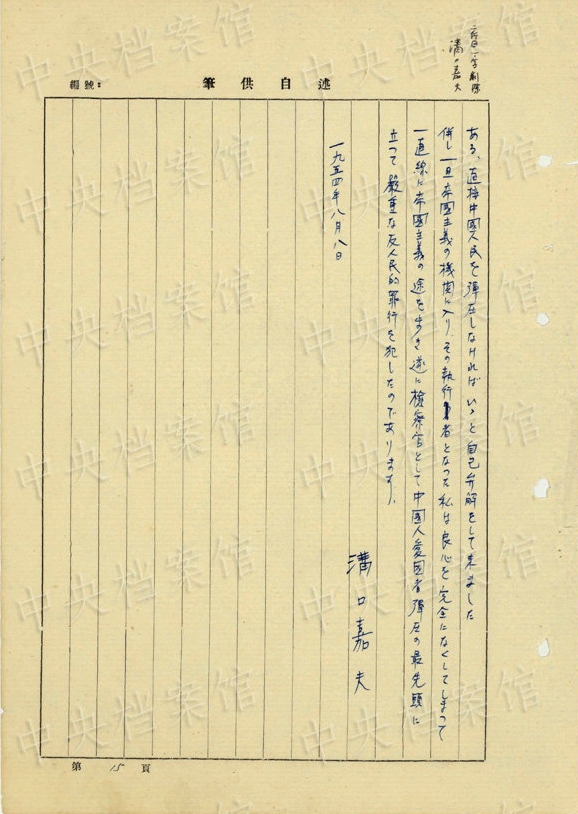 溝口嘉夫
述自供筆
編號：
ある、直接中國人民を弾圧しなければいゝと自己弁解をして来ました
併し一旦帝國主義の機関に入り、その執行者となった私は良心を完全になくしてしまって
一直線に帝國主義の途を歩き遂に檢察官として中國人愛國者弾圧の最先頭に
立って嚴重な反人民的罪行を犯したのであります。
一九五四年八月八日
溝口嘉夫
第15頁
中央档案馆